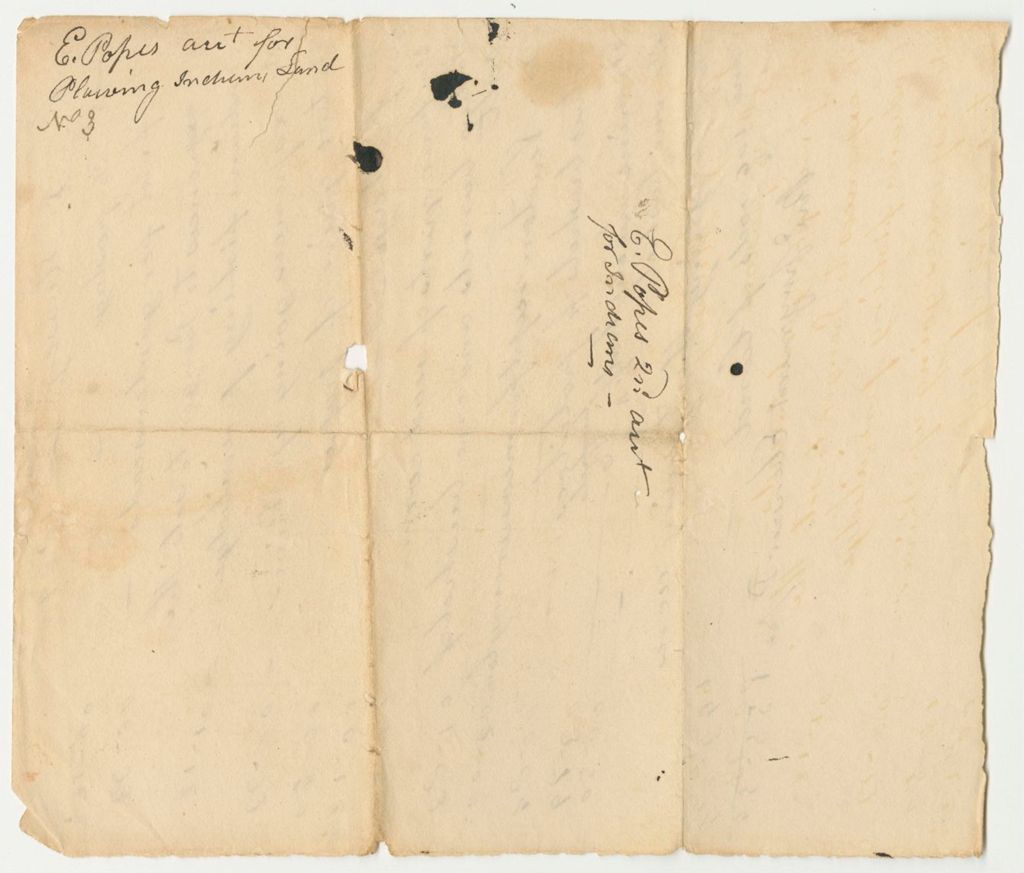 E. Popes acct for
Plowing Indians Land
No 3
E. Popes 2nd acct
for Indians